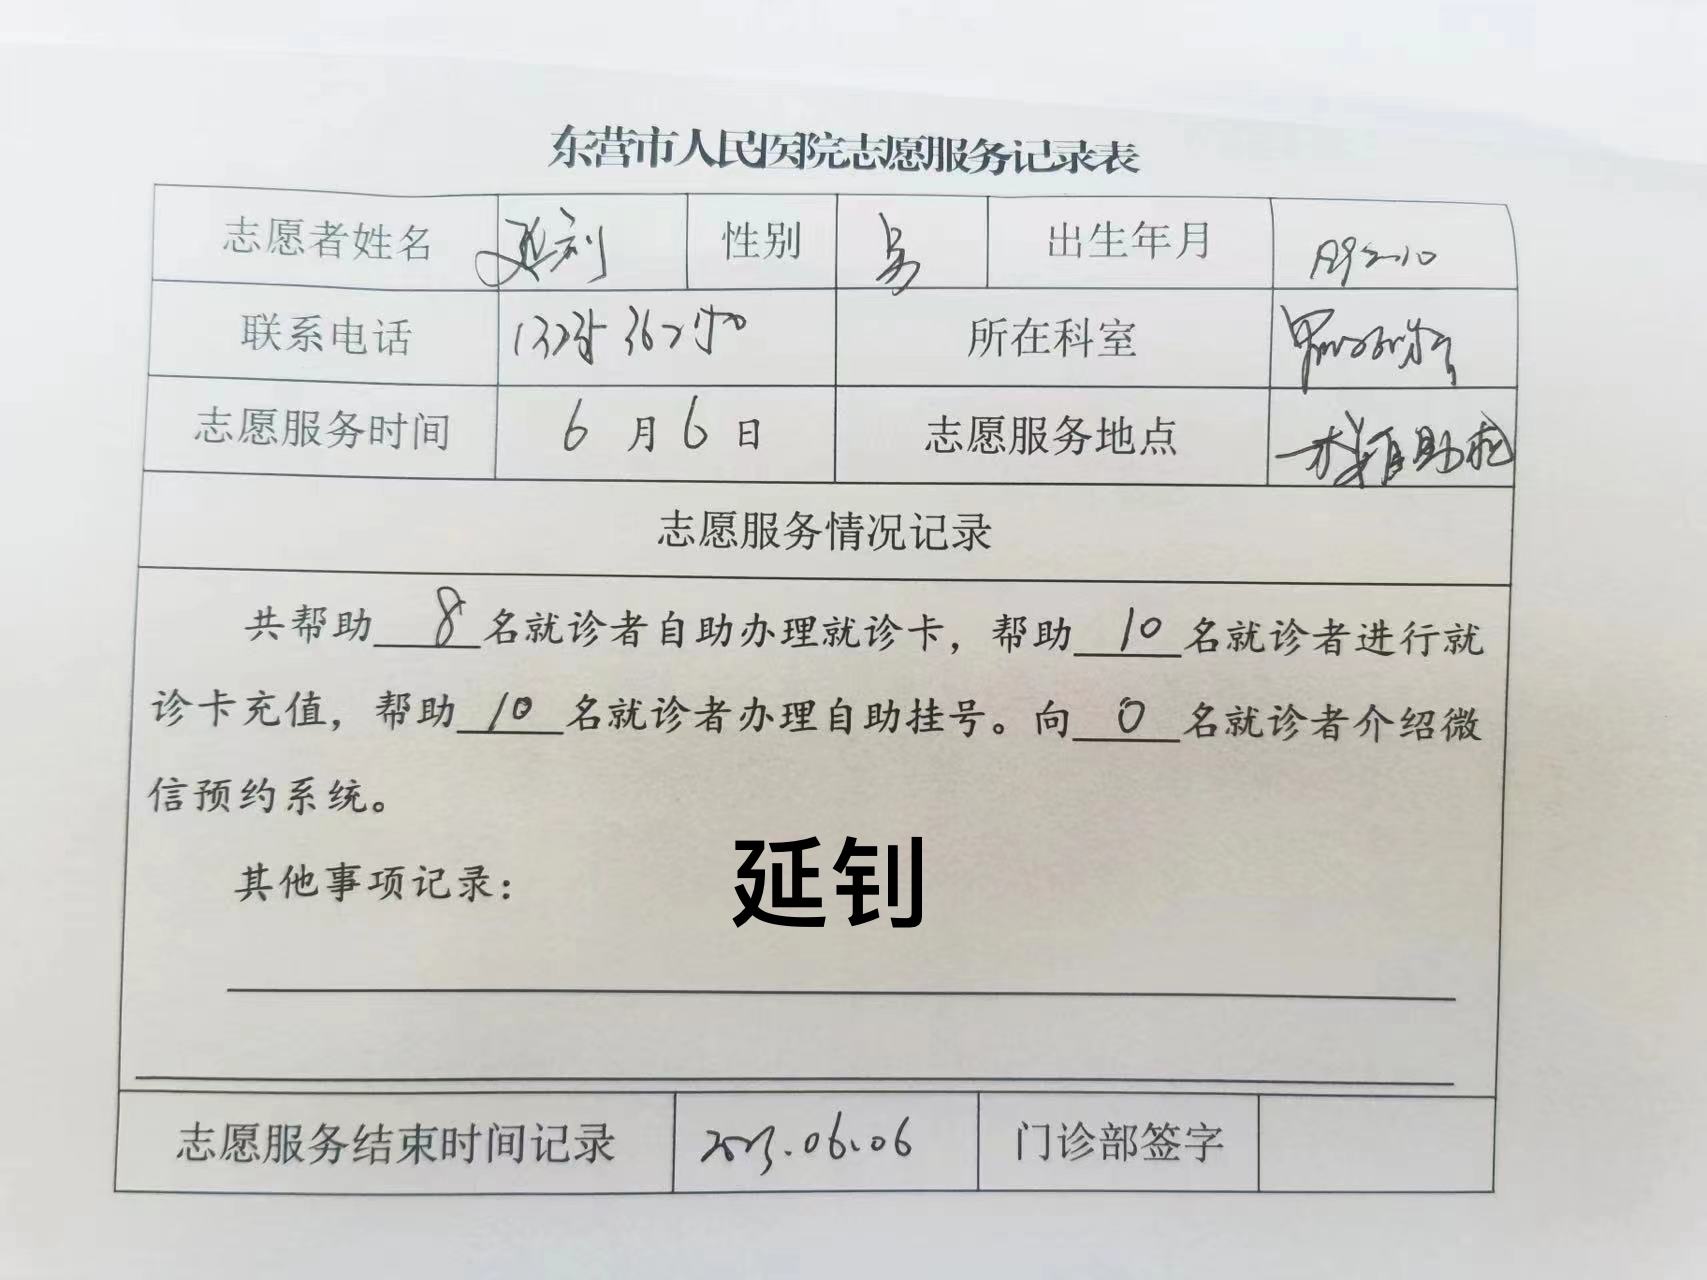 东营市人民医院志愿服务记录表
志愿者姓名 延钊 性别 男 出生年月
联系电话 所在科室
志愿服务时间 6月6日 志愿服务地点 自助机
志愿服务情况记录
共帮助8名就诊者自助办理就诊卡，帮助10名就诊者进行就
诊卡充值，帮助10名就诊者办理自助挂号。向0名就诊者介绍微
信预约系统。
其他事项记录：
延钊
志愿服务结束时间记录 2023.06.06 门诊部签字